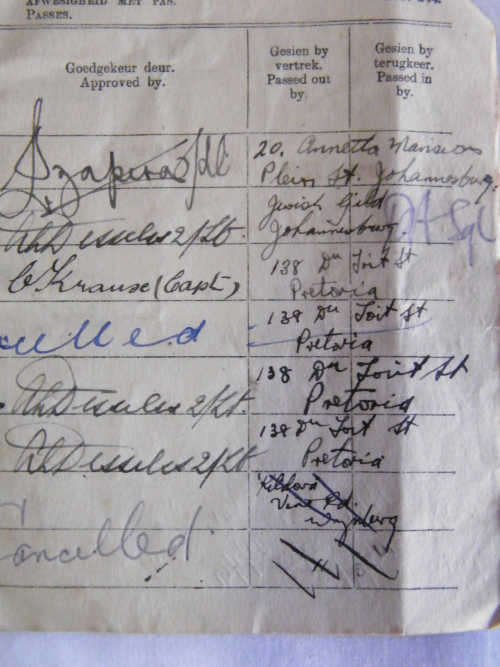 AFWESIGHEID MET PAS.
PASSES.
Goedgekeur deur.
Approved by.
Gesien by
vertrek.
Passed out
by.
Gesien by
terugkeer.
Passed in
by.
20. Annetta Mansions
Plein St. Johannesburg.
Jewish Gild
Johannesburg.
2/Lt.
C Krause (Capt)
138 Du Toit St
Pretoria
138 Du Toit St
Pretoria
2/Lt.
138 Du Toit St
Pretoria
2/Lt
138 Du Toit St
Pretoria
Rd.
Wynberg
Cancelled